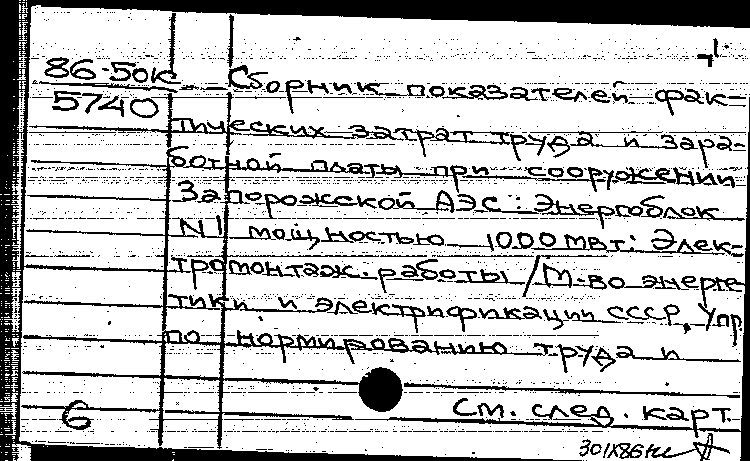 86-50к
5740
Сборник показателей фак-
тических затрат труда и зара-
ботной платы при сооружении
Запорожской АЭС: Энергоблок
N1 мощностью 1000мвт: Элек-
тромонтаж. работы / М-во энерге
тики и электрификации СССР, Упр
по нормированию труда и
6
См. след. карт.